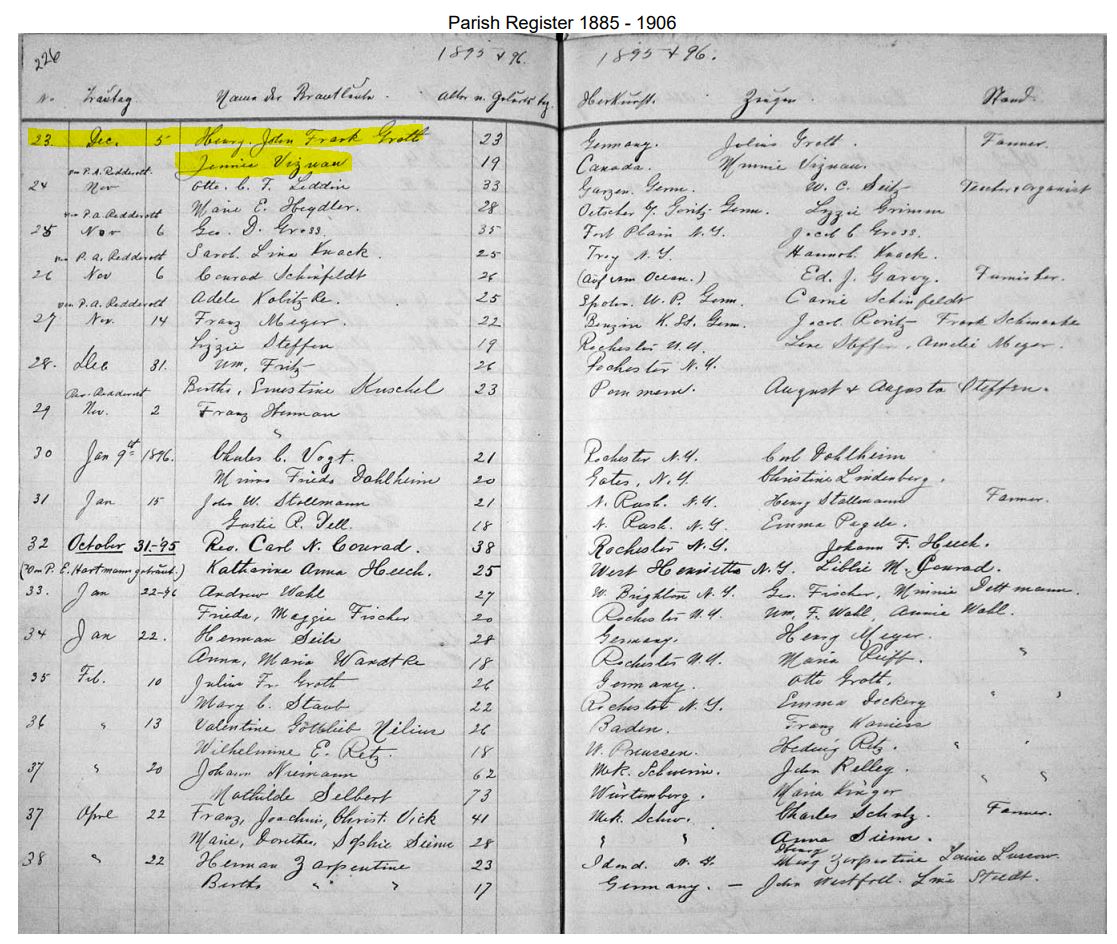 Parish Register 1885 - 1906
226 1895 & 96. 1895 & 96.
No. Trautag Name der Brautleute. Alter u. Geburtstag. Herkunft. Zeugen. Stand.
23. Dec. 5 Henry John Frank Groth 23 Germany. Julius Groth. Farmer.
Jennie Viznau 19 Canada. Minnie Viznau.
von P. A. Redderoth
24 Nov Otto. C. F. Leddin 33 Garzen. Germ. W. C. Seitz Teacher & organist
Marie E. Heydler. 28 Germ. Lizzie Grimm
von P. A. Redderoth
25 Nov 6 Geo. D. Gross. 35 Fort Plain N.Y. Jacob C. Gross.
Sarah Lina Knack. 25 Troy N.Y. Hannah Knack.
von P. A. Redderoth
26 Nov 6 Conrad Schinfeldt 26 (Auf dem Ocean.) Ed. J. Garvy. Furnisher.
Adele Kolitzke. 25 W. P. Germ. Carrie Schinfeldt
von P. A. Redderoth
27 Nov. 14 Franz Meyer. 22 Benzin K. St. Germ. Jacob Frank
Lizzie Steffen 19 Rochester N.Y. Line Steffen, Amelie Meyer.
28. Dec 31. Wm. Fritz 26 Rochester N.Y.
Bertha, Ernestine Kuschel 23 Pommern. August & Augusta Steffen.
29 Nov. 2 Franz Herman
"
30 Jan 9th 1896. Charles C. Vogt. 21 Rochester N.Y. Carl Dahlheim
Minna Frieda Dahlheim 20 Gates, N.Y. Christine Lindenberg.
31 Jan 15 John W. Stollmann 21 N. Rush. N.Y. Henry Stallmann Farmer.
Gustie R. Dell. 18 N. Rush. N.Y. Emma Pegele.
32 October 31-95 Rev. Carl N. Conrad. 38 Rochester N.Y. Johann F. Heech.
(Von P. E. Hartmann getraut.) Katharina Anna Heech. 25 West Henrietta N.Y. Libbie M. Conrad.
33. Jan 22-96 Andrew Wahl 27 W. Brighton N.Y. Geo. Fischer, Minnie Dettmann.
Frieda, Maggie Fischer 20 Rochester N.Y. Wm. F. Wahl, Annie Wahl.
34 Jan 22. Herman Seile 28 Germany. Henry Meyer.
Anna, Maria Wandtke 18 Rochester N.Y. Maria Reiff. "
35 Feb. 10 Julius Fr. Groth 26 Germany. Otto Groth.
Mary C. Staub 22 Rochester N.Y. Emma Dockery " "
36 " 13 Valentine Gottlieb Nilius 26 Baden. Franz
Wilhelmine E. Retz. 18 W. Preussen. Hedwig Retz. " "
37 " 20 Johann Niemann 62 Mek. Schwerin. John Kelley. " "
Mathilde Selbert 73 Würtemberg. Maria Krüger
37 April 22 Franz, Joachim, Christ. Vick 41 Mek. Schw. Charles Schulz. Farmer.
Marie, Dorothea, Sophie Sieme 28 " " Anna Sieme.
38 " 22 Herman Zarpentine 23 N.Y. Henry Zarpentine Louise Lussow.
Bertha " " 17 Germany. — John Westfall. Line Stüdt.